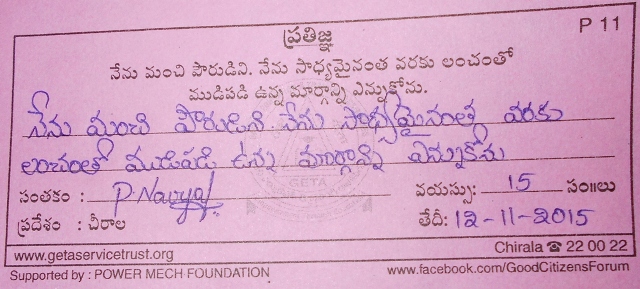 P 11
ప్రతిజ్ఞ
నేను మంచి పౌరుడిని. నేను సాధ్యమైనంత వరకు లంచంతో
ముడిపడి ఉన్న మార్గాన్ని ఎన్నుకోను.
నేను మంచి పౌరుడిని నేను సాధ్యమైనంత వరకు
లంచంతో ముడిపడి ఉన్న మార్గాన్ని ఎన్నుకోను
GETA
సంతకం : P. Navya వయస్సు: 15 సం॥లు
ప్రదేశం : చీరాల తేదీ: 12-11-2015
www.getaservicetrust.org Chirala ☎ 22 00 22
Supported by : POWER MECH FOUNDATION www.facebook.com/GoodCitizensForum